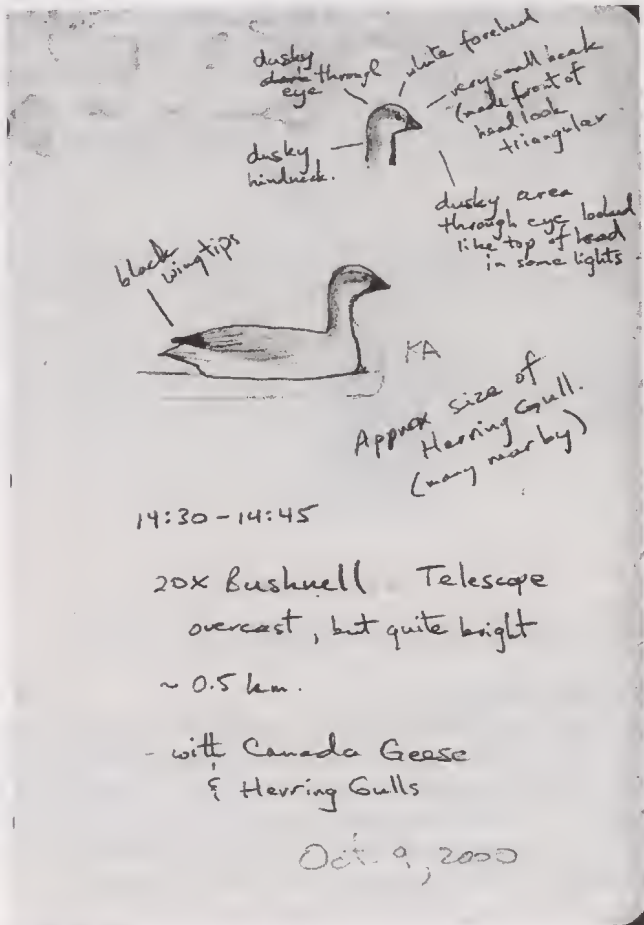 dusky
through
eye
white forehead
very small beak
(made front of
head look
triangular
dusky
hindneck.
dusky area
through eye looked
like top of head
in some lights
black
wing tips
KA
Approx size of
Herring Gull.
(many nearby)
14:30-14:45
20x Bushnell Telescope
overcast, but quite bright
~ 0.5 km.
- with Canada Geese
& Herring Gulls
Oct. 9, 2000